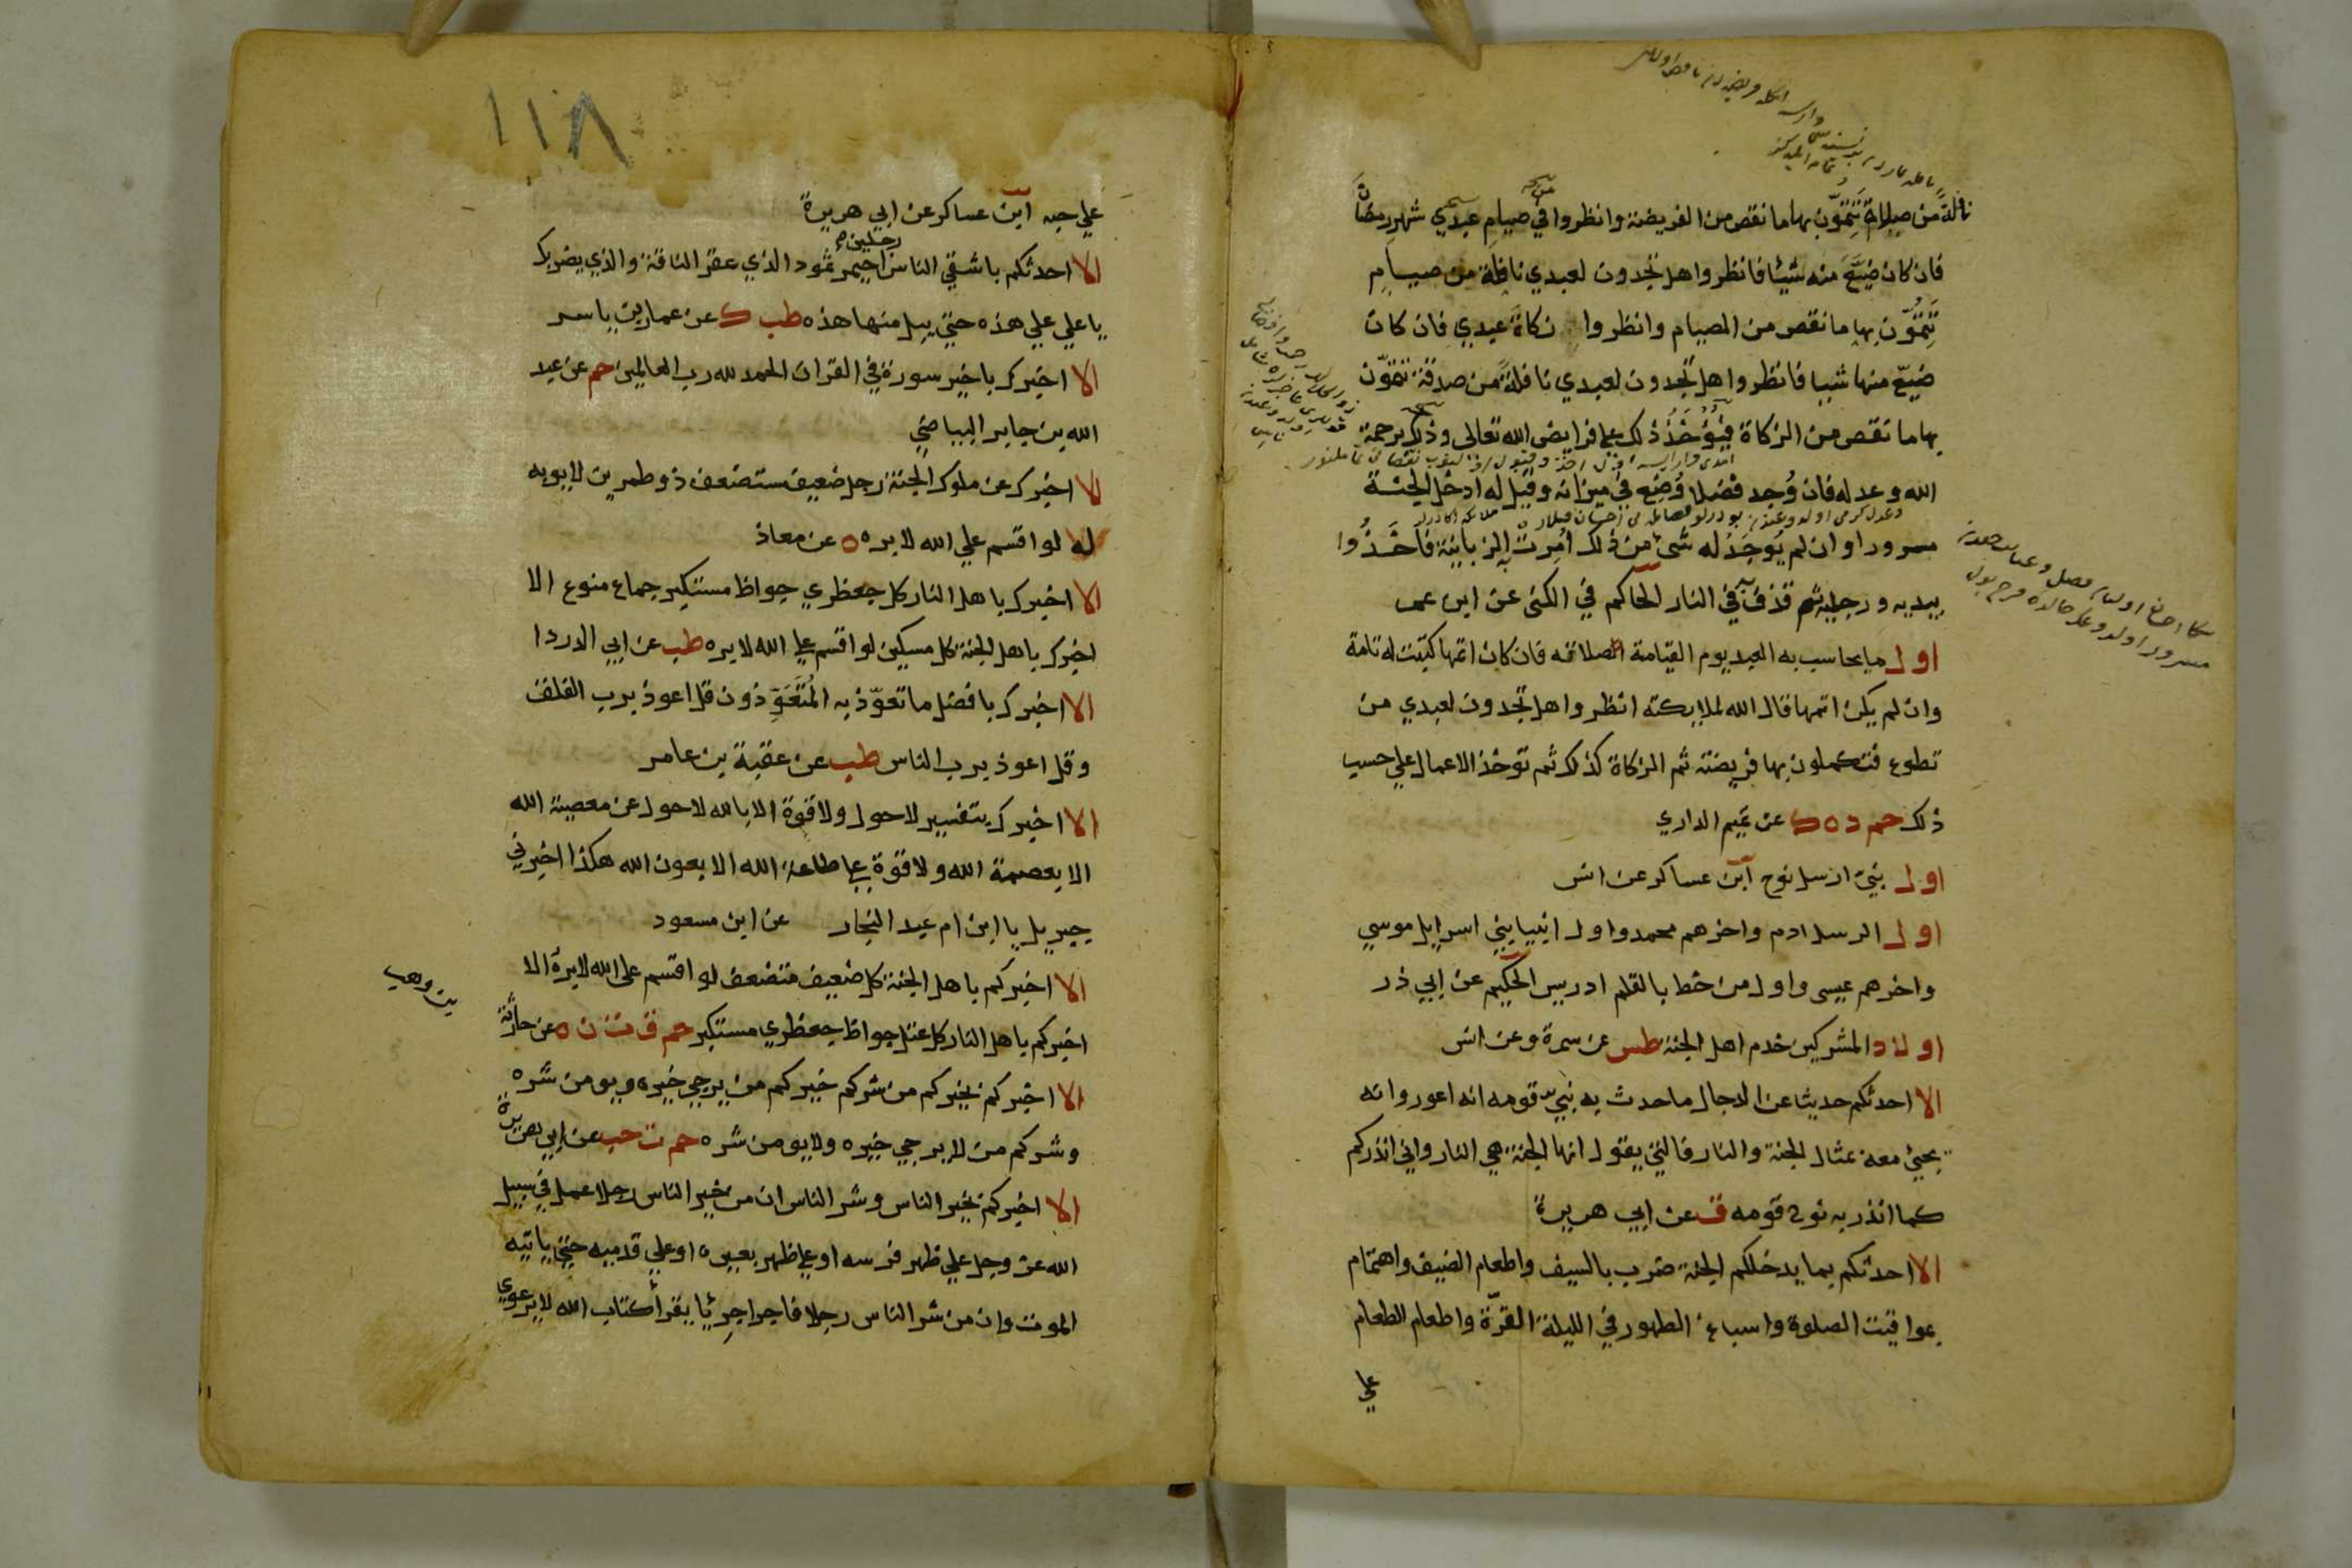 نافلة من صلاة تتمون بها ما نقص من الفريضة وانظروا في صيام عبدي شهر رمضان
فان كان ضيع منه شيئا فانظروا هل تجدون لعبدي نافلة من صيام
تتمون بها ما نقص من الصيام وانظروا زكاة عبدي فان كان
ضيع منها شيا فانظروا هل تجدون لعبدي نافلة من صدقة تتمون
بها ما نقص من الزكاة فيؤخذ ذلك على فرايض الله تعالى وذلك برحمة
الله وعدله فان وجد فضلا وضع في ميزانه وقيل له ادخل الجنة
مسرورا وان لم يوجد له شئ من ذلك امرت به الزبانية فاخذوا
بيديه ورجليه ثم قذف به في النار الحاكم في الكنى عن ابن عمر
اول ما يحاسب به العبد يوم القيامة صلاته فان كان اتمها كتبت له تامة
وان لم يكن اتمها قال الله لملايكته انظروا هل تجدون لعبدي من
تطوع فتكملون بها فريضته ثم الزكاة كذلك ثم توخذ الاعمال علي حسب
ذلك حم د ه ك عن تميم الداري
اول نبي ارسل نوح ابن عساكر عن انس
اول الرسل ادم واخرهم محمد واول انبيا بني اسرايل موسي
واخرهم عيسى واول من خط بالقلم ادريس الحكيم عن ابي ذر
اولاد المشركين خدم اهل الجنة طس عن سمرة وعن انس
الا احدثكم حديثا عن الدجال ما حدث به نبي قومه انه اعور وانه
يجئ معه بمثال الجنة والنار فالتي يقول انها الجنة هي النار واني انذركم
كما انذر به نوح قومه ق عن ابي هريرة
الا احدثكم بما يدخلكم الجنة ضرب بالسيف واطعام الضيف واهتمام
بمواقيت الصلوة واسباغ الطهور في الليلة القرة واطعام الطعام
علي
١١٨
علي حبه ابن عساكر عن ابي هريرة
رجلين
الا احدثكم باشقي الناس احيمر ثمود الذي عقر الناقة والذي يضربك
يا علي علي هذه حتي يبل منها هذه طب ك عن عمار بن ياسر
الا اخبرك باخير سورة في القران الحمد لله رب العالمين حم عن عبد
الله بن جابر البياضي
الا اخبرك عن ملوك الجنة رجل ضعيف مستضعف ذو طمرين لا يوبه
له لو اقسم علي الله لابره ه عن معاذ
الا اخبرك باهل النار كل جعظري جواظ مستكبر جماع منوع الا
اخبرك باهل الجنة كل مسكين لو اقسم على الله لابره طب عن ابي الدردا
الا اخبرك بافضل ما تعوذ به المتعوذون قل اعوذ برب الفلق
وقل اعوذ برب الناس طب عن عقبة بن عامر
الا اخبرك بتفسير لا حول ولا قوة الا بالله لا حول عن معصية الله
الا بعصمة الله ولا قوة على طاعة الله الا بعون الله هكذا اخبرني
جبريل يا ابن ام عبد النجار عن ابن مسعود
الا اخبركم باهل الجنة كل ضعيف متضعف لو اقسم على الله لابره الا
اخبركم باهل النار كل عتل جواظ جعظري مستكبر حم ق ت ن ه عن حارثة
بن وهب
الا اخبركم بخيركم من شركم خيركم من يرجي خيره ويومن شره
وشركم من لا يرجي خيره ولا يومن شره حم ت حب عن ابي هريرة
الا اخبركم بخير الناس وشر الناس ان من خير الناس رجلا عمل في سبيل
الله عز وجل علي ظهر فرسه او علي ظهر بعيره او علي قدميه حتي ياتيه
الموت وان من شر الناس رجلا فاجرا جريئا يقرأ كتاب الله لا يرعوي